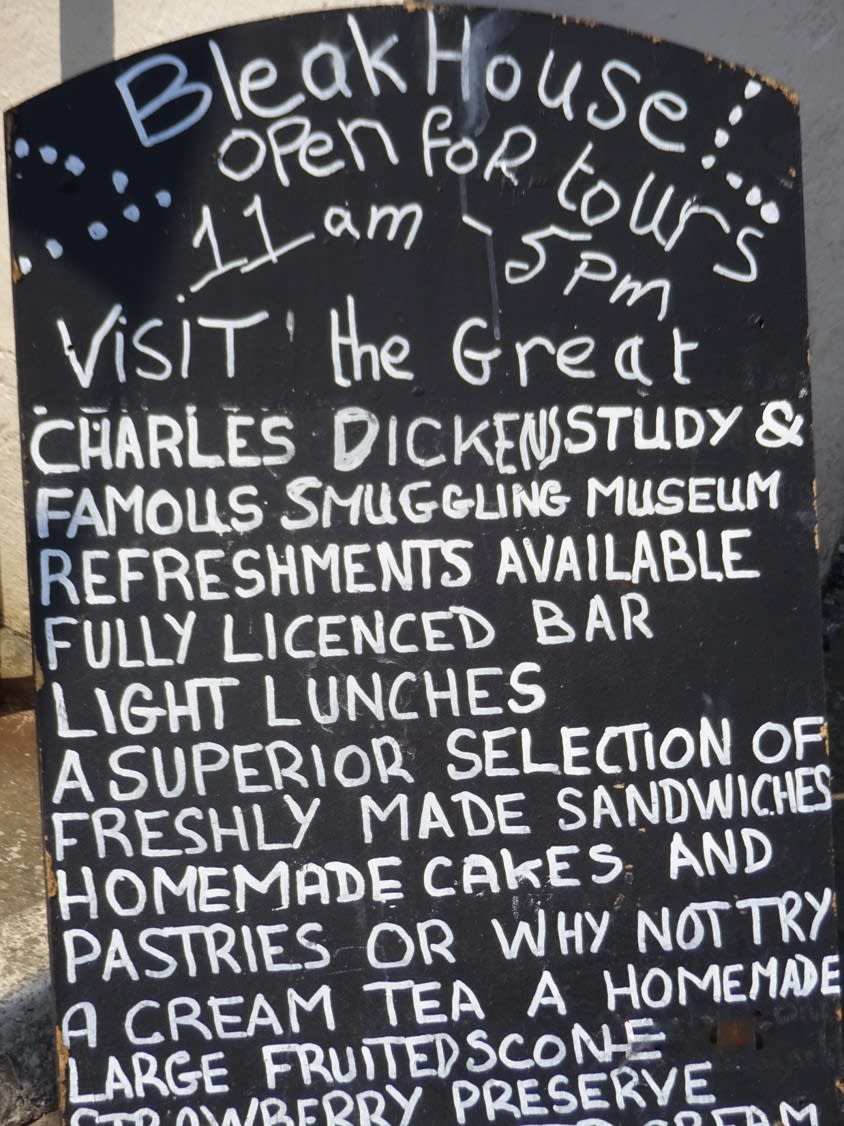 Bleak House!
open for tours
11 am - 5 pm
VISIT the Great
CHARLES DICKENS STUDY &
FAMOUS SMUGGLING MUSEUM
REFRESHMENTS AVAILABLE
FULLY LICENCED BAR
LIGHT LUNCHES
A SUPERIOR SELECTION OF
FRESHLY MADE SANDWICHES
HOMEMADE CAKES AND
PASTRIES OR WHY NOT TRY
A CREAM TEA A HOMEMADE
LARGE FRUITED SCONE
STRAWBERRY PRESERVE
CREAM